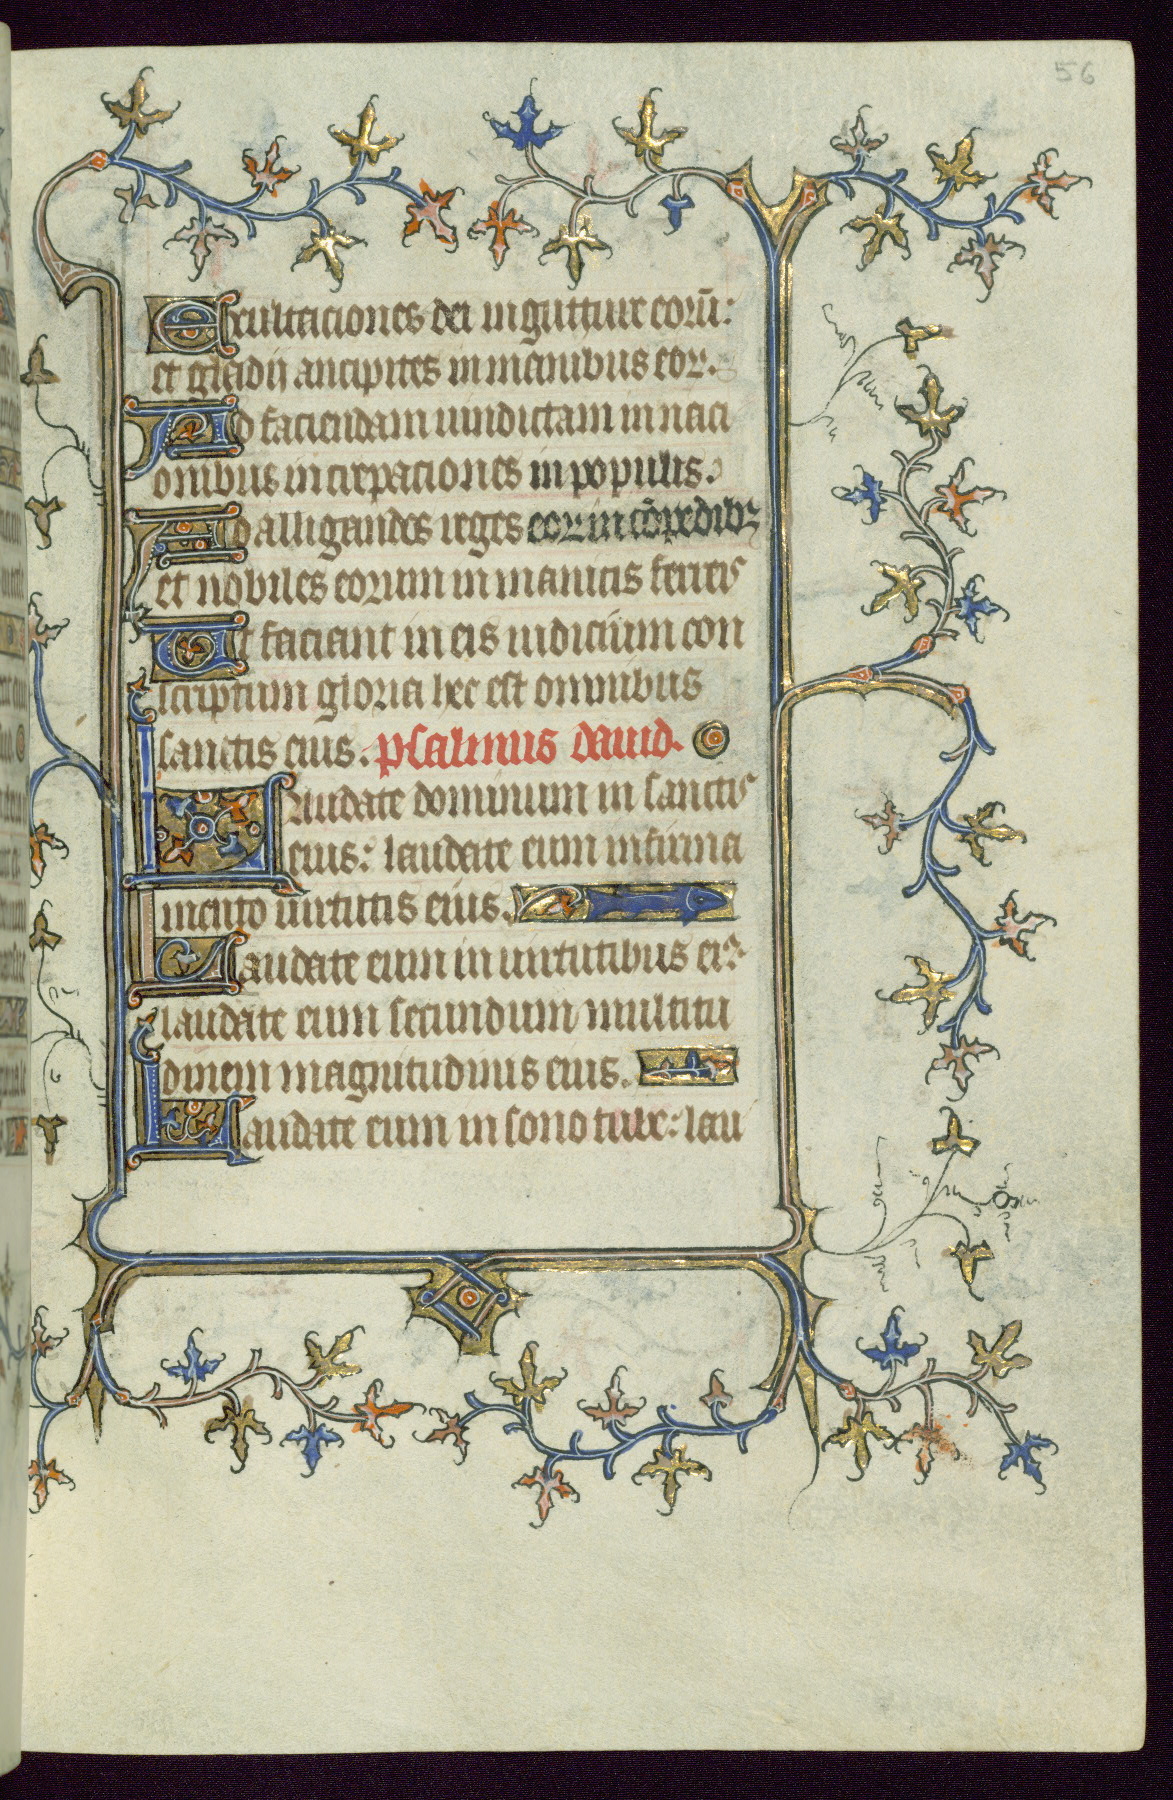 56
Exultaciones dei in gutture eorū:
et gladij ancipites in manibus eoꝝ.
Ad faciendam uindictam in naci
onibus increpaciones in populis.
Ad alligandos reges eoꝝ in cōpedibꝫ
et nobiles eorum in manicis ferreis
Ut faciant in eis iudicium con
scriptum gloria hec est omnibus
sanctis eius. psalmus dauid.
Laudate dominum in sanctis
eius: laudate eum in firma
mento uirtutis eius.
Laudate eum in uirtutibus eiꝰ
laudate eum secundum multitu
dinem magnitudinis eius.
Laudate eum in sono tube: lau